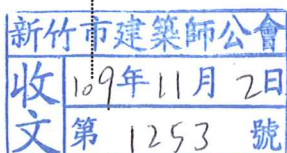 新竹市建築師公會
收文
109年11月2日
第 1253 號